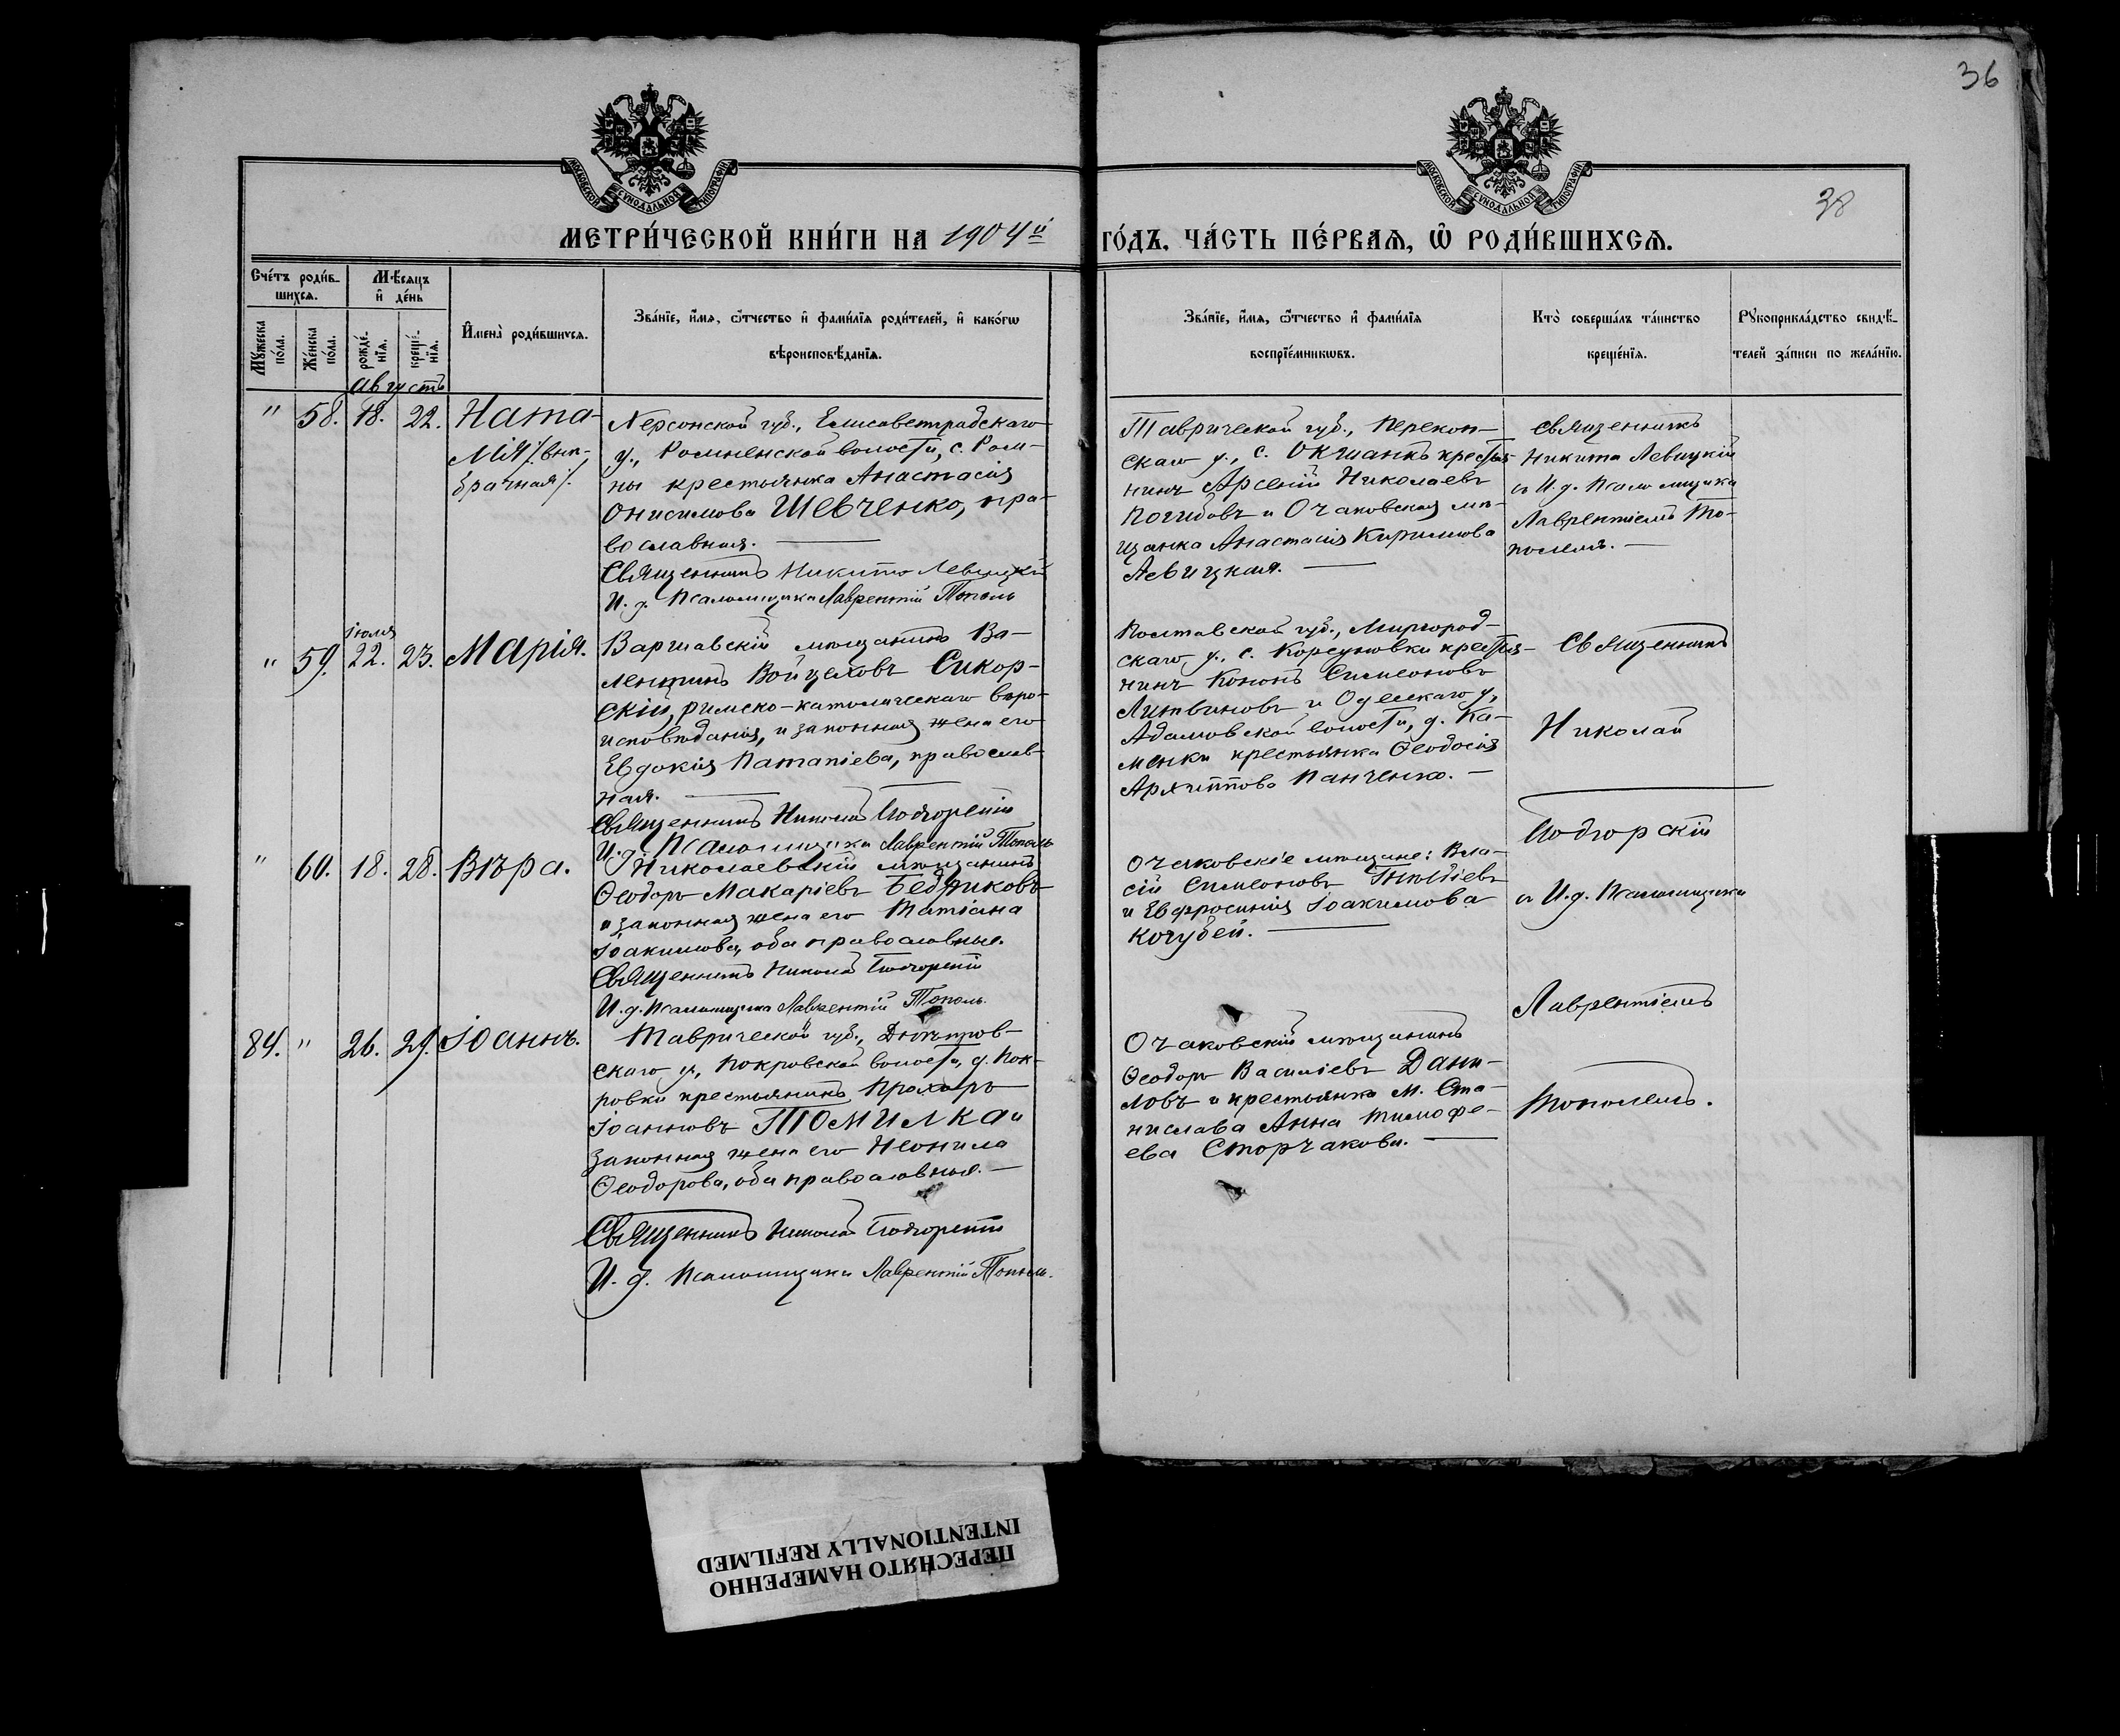 36
38
МОСКОВСКОЙ СѴНОДАЛЬНОЙ ТИПОГРАФІИ
МОСКОВСКОЙ СѴНОДАЛЬНОЙ ТИПОГРАФІИ
МЕТРИ́ЧЕСКОЙ КНИ́ГИ НА 1904й ГО́ДЪ, ЧА́СТЬ ПЕ́РВАЯ, Ѡ҆ РОДИ́ВШИХСЯ.
Сче́тъ роди́в-
шихся.
Мꙋ́жеска по́ла.
Же́нска по́ла.
Мѣ́сяцъ
и҆ де́нь
рожде́-
нїя.
креще́-
нїя.
И҆мена̀ роди́вшихся.
Зва́нїе, и҆́мя, ѻ҆́тчество и҆ фами́лїя роди́телей, и҆ како́гѡ
вѣроисповѣ́данїя.
Зва́нїе, и҆́мя, ѻ҆́тчество и҆ фами́лїя
воспрїе́мникѡвъ.
Кто̀ соверша́лъ та́инство
креще́нїя.
Рꙋкоприкла́дство свидѣ́-
телей за́писи по жела́нїю.
Августъ
" 58. 18. 22. Ната-
лія /внѣ-
брачная/.
Херсонской губ., Елисаветградскаго
у., Ровненской волости, с. Ров-
ны крестьянка Анастасія
Онисимова Шевченко, пра-
вославная.
Священникъ Никита Левицкій
И. д. Псаломщика Лаврентій Тополь
Таврической губ., Перекоп-
скаго у., с. крестья-
нинъ Арсеній Николаевъ
и Очаковская мѣ-
щанка Анастасія Кириллова
Левицкая.
Священникъ
Никита Левицкій
съ И. д. Псаломщика
Лаврентіемъ То-
полемъ.
" 59. іюля 22. 23. Марія.
Варшавскій мѣщанинъ Ва-
лентинъ Войцеховъ Сикор-
скій, римско-католическаго вѣро-
исповѣданія, и законная жена его
Евдокія Патапіева, православ-
ная.
Священникъ Николай Подгорскій
И. д. Псаломщика Лаврентій Тополь
Полтавской губ., Миргород-
скаго у., с. крестья-
нинъ Кононъ Симеоновъ
Литвиновъ и Одесскаго у.,
Адамовской волости, д. Ка-
менки крестьянка Ѳеодосія
Архиппова Панченко.
Священникъ
Николай
Подгорскій
съ И. д. Псаломщика
Лаврентіемъ
Тополемъ.
" 60. 18. 28. Вѣра.
Николаевскій мѣщанинъ
Ѳеодоръ Макаріевъ
и законная жена его Татіана
Іоакимова, оба православные.
Священникъ Николай Подгорскій
И. д. Псаломщика Лаврентій Тополь.
Очаковскіе мѣщане: Вла-
сій Симеоновъ
и Евфросинія Іоакимова
Кочубей.
84. " 26. 29. Іоаннъ.
Таврической губ., Днѣпров-
скаго у., Покровской волости, д. Пок-
ровки крестьянинъ Прохоръ
Іоанновъ Томилка и
законная жена его Неонила
Ѳеодорова, оба православные.
Священникъ Николай Подгорскій
И. д. Псаломщика Лаврентій Тополь.
Очаковскій мѣщанинъ
Ѳеодоръ Василіевъ Дани-
ловъ и крестьянка м. Ста-
нислава Анна Тимофе-
ева Сторчакова.
ПЕРЕСНЯТО НАМЕРЕННО
INTENTIONALLY REFILMED